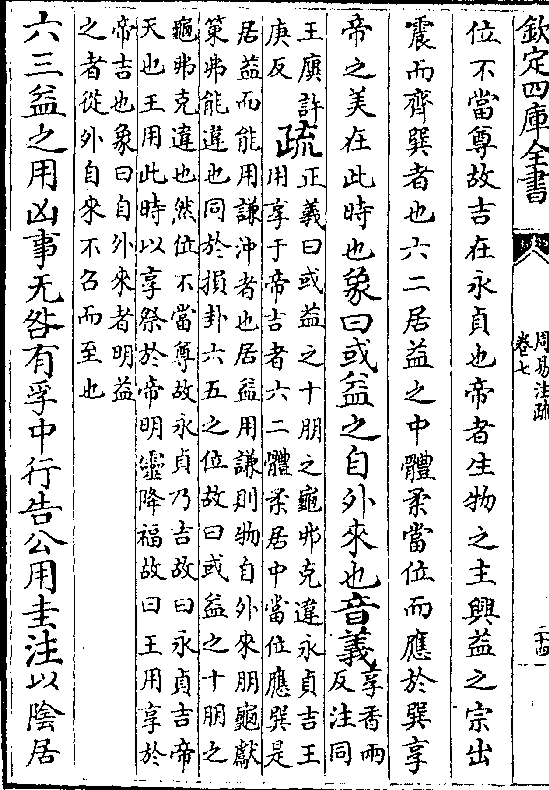 欽定四庫全書
周易注疏
卷七
二十四
位不當尊故吉在永貞也帝者生物之主興益之宗出
震而齊巽者也六二居益之中體柔當位而應於巽享
帝之美在此時也象曰或益之自外來也音義享香兩
反注同
王廙許
庚反疏正義曰或益之十朋之龜弗克違永貞吉王
用享于帝吉者六二體柔居中當位應巽是
居益而能用謙沖者也居益用謙則物自外來朋龜獻
策弗能違也同於損卦六五之位故曰或益之十朋之
龜弗克違也然位不當尊故永貞乃吉故曰永貞吉帝
天也王用此時以享祭於帝明靈降福故曰王用享於
帝吉也象曰自外來者明益
之者從外自來不召而至也
六三益之用凶事无咎有孚中行告公用圭注以陰居